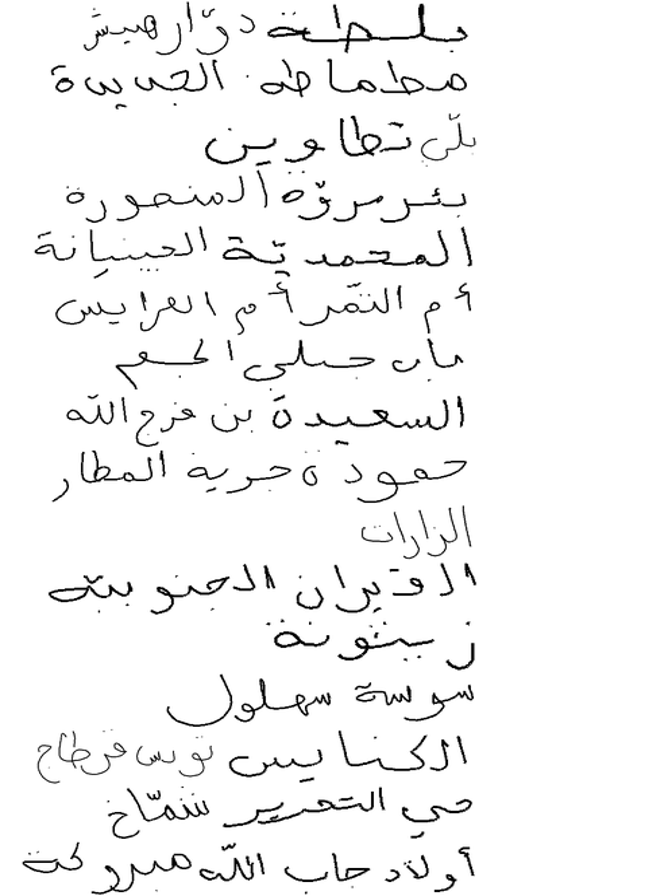 بلطة دوّار هيشر
مطماطه الجديدة
بلّي تطاوين
بئر مروّة المنصورة
المحمديّة الحبيبانة
أم التمّر أم العرايس
باب جبلي الجم
السعيدة بن فرج الله
حمودة جربة المطار
الزارات
القيران الجنوبيّه
زيتونة
سوسة سهلول
الكنايس تونس قرطاج
حي التحرير شمّاخ
أولاد جاب اللّه مبروكة